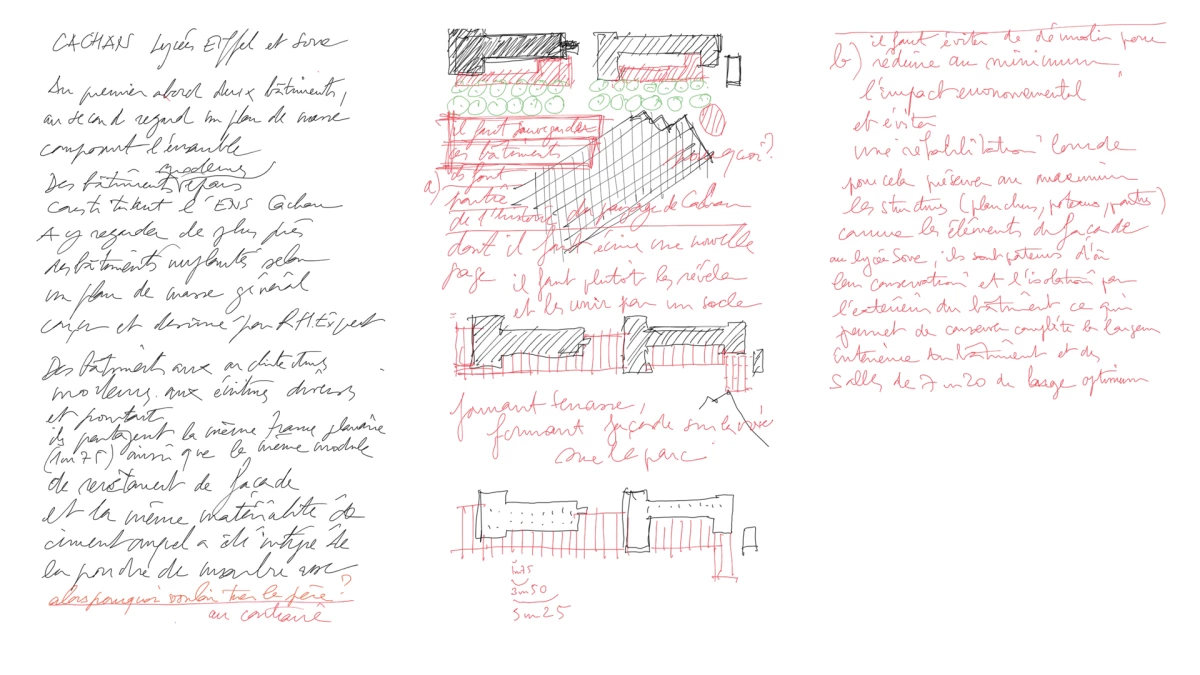 CACHAN Lycées Eiffel et Sore
Au premier abord deux bâtiments,
au second regard un plan de masse
composant l'ensemble
modernes
Des bâtiments repais
constituent l'ENS Cachan
A y regarder de plus près
des bâtiments implantés selon
un plan de masse général
conçu et dessiné par R.H. Expert
Des bâtiments aux architectures
modernes aux écritures diverses
et pourtant
ils partagent la même trame planaire
(1m75) ainsi que le même module
de revêtement de façade
et la même matérialité de
ciment auquel a été intégré de
la poudre de marbre rose
alors pourquoi vouloir tuer le père?
au contraire
il faut sauvegarder
ces bâtiments
pourquoi?
a) ils font
partie
de l'histoire du paysage de Cachan
dont il faut écrire une nouvelle
page il faut plutôt les révéler
et les unir par un socle
formant terrasse,
formant façade sur la voirie
sur le parc
1m75
3m50
5m25
b) il faut éviter de démolir pour
réduire au minimum
l'impact environnemental
et éviter
une réhabilitation lourde
pour cela préserver au maximum
les structures (planchers, poteaux, poutres)
comme les éléments de façade
au lycée Sore, ils sont porteurs d'où
leur conservation et l'isolation par
l'extérieur du bâtiment ce qui
permet de conserver complète la largeur
intérieure du bâtiment et des
salles de 7m20 de large optimum